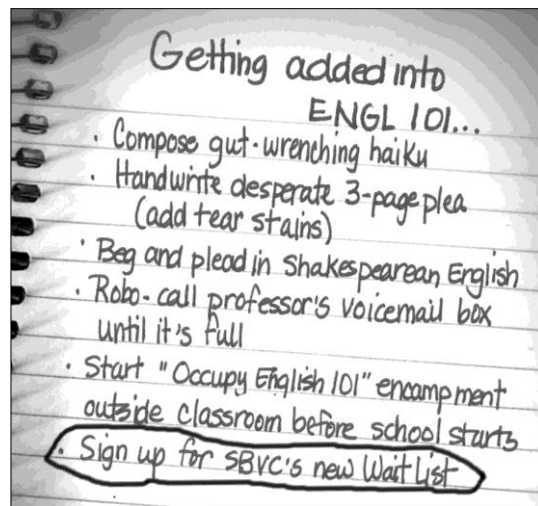 Getting added into
ENGL 101...
· Compose gut-wrenching haiku
· Handwrite desperate 3-page plea
(add tear stains)
· Beg and plead in Shakespearean English
· Robo-call professor's voicemail box
until it's full
· Start "Occupy English 101" encampment
outside classroom before school starts
· Sign up for SBVC's new Wait List